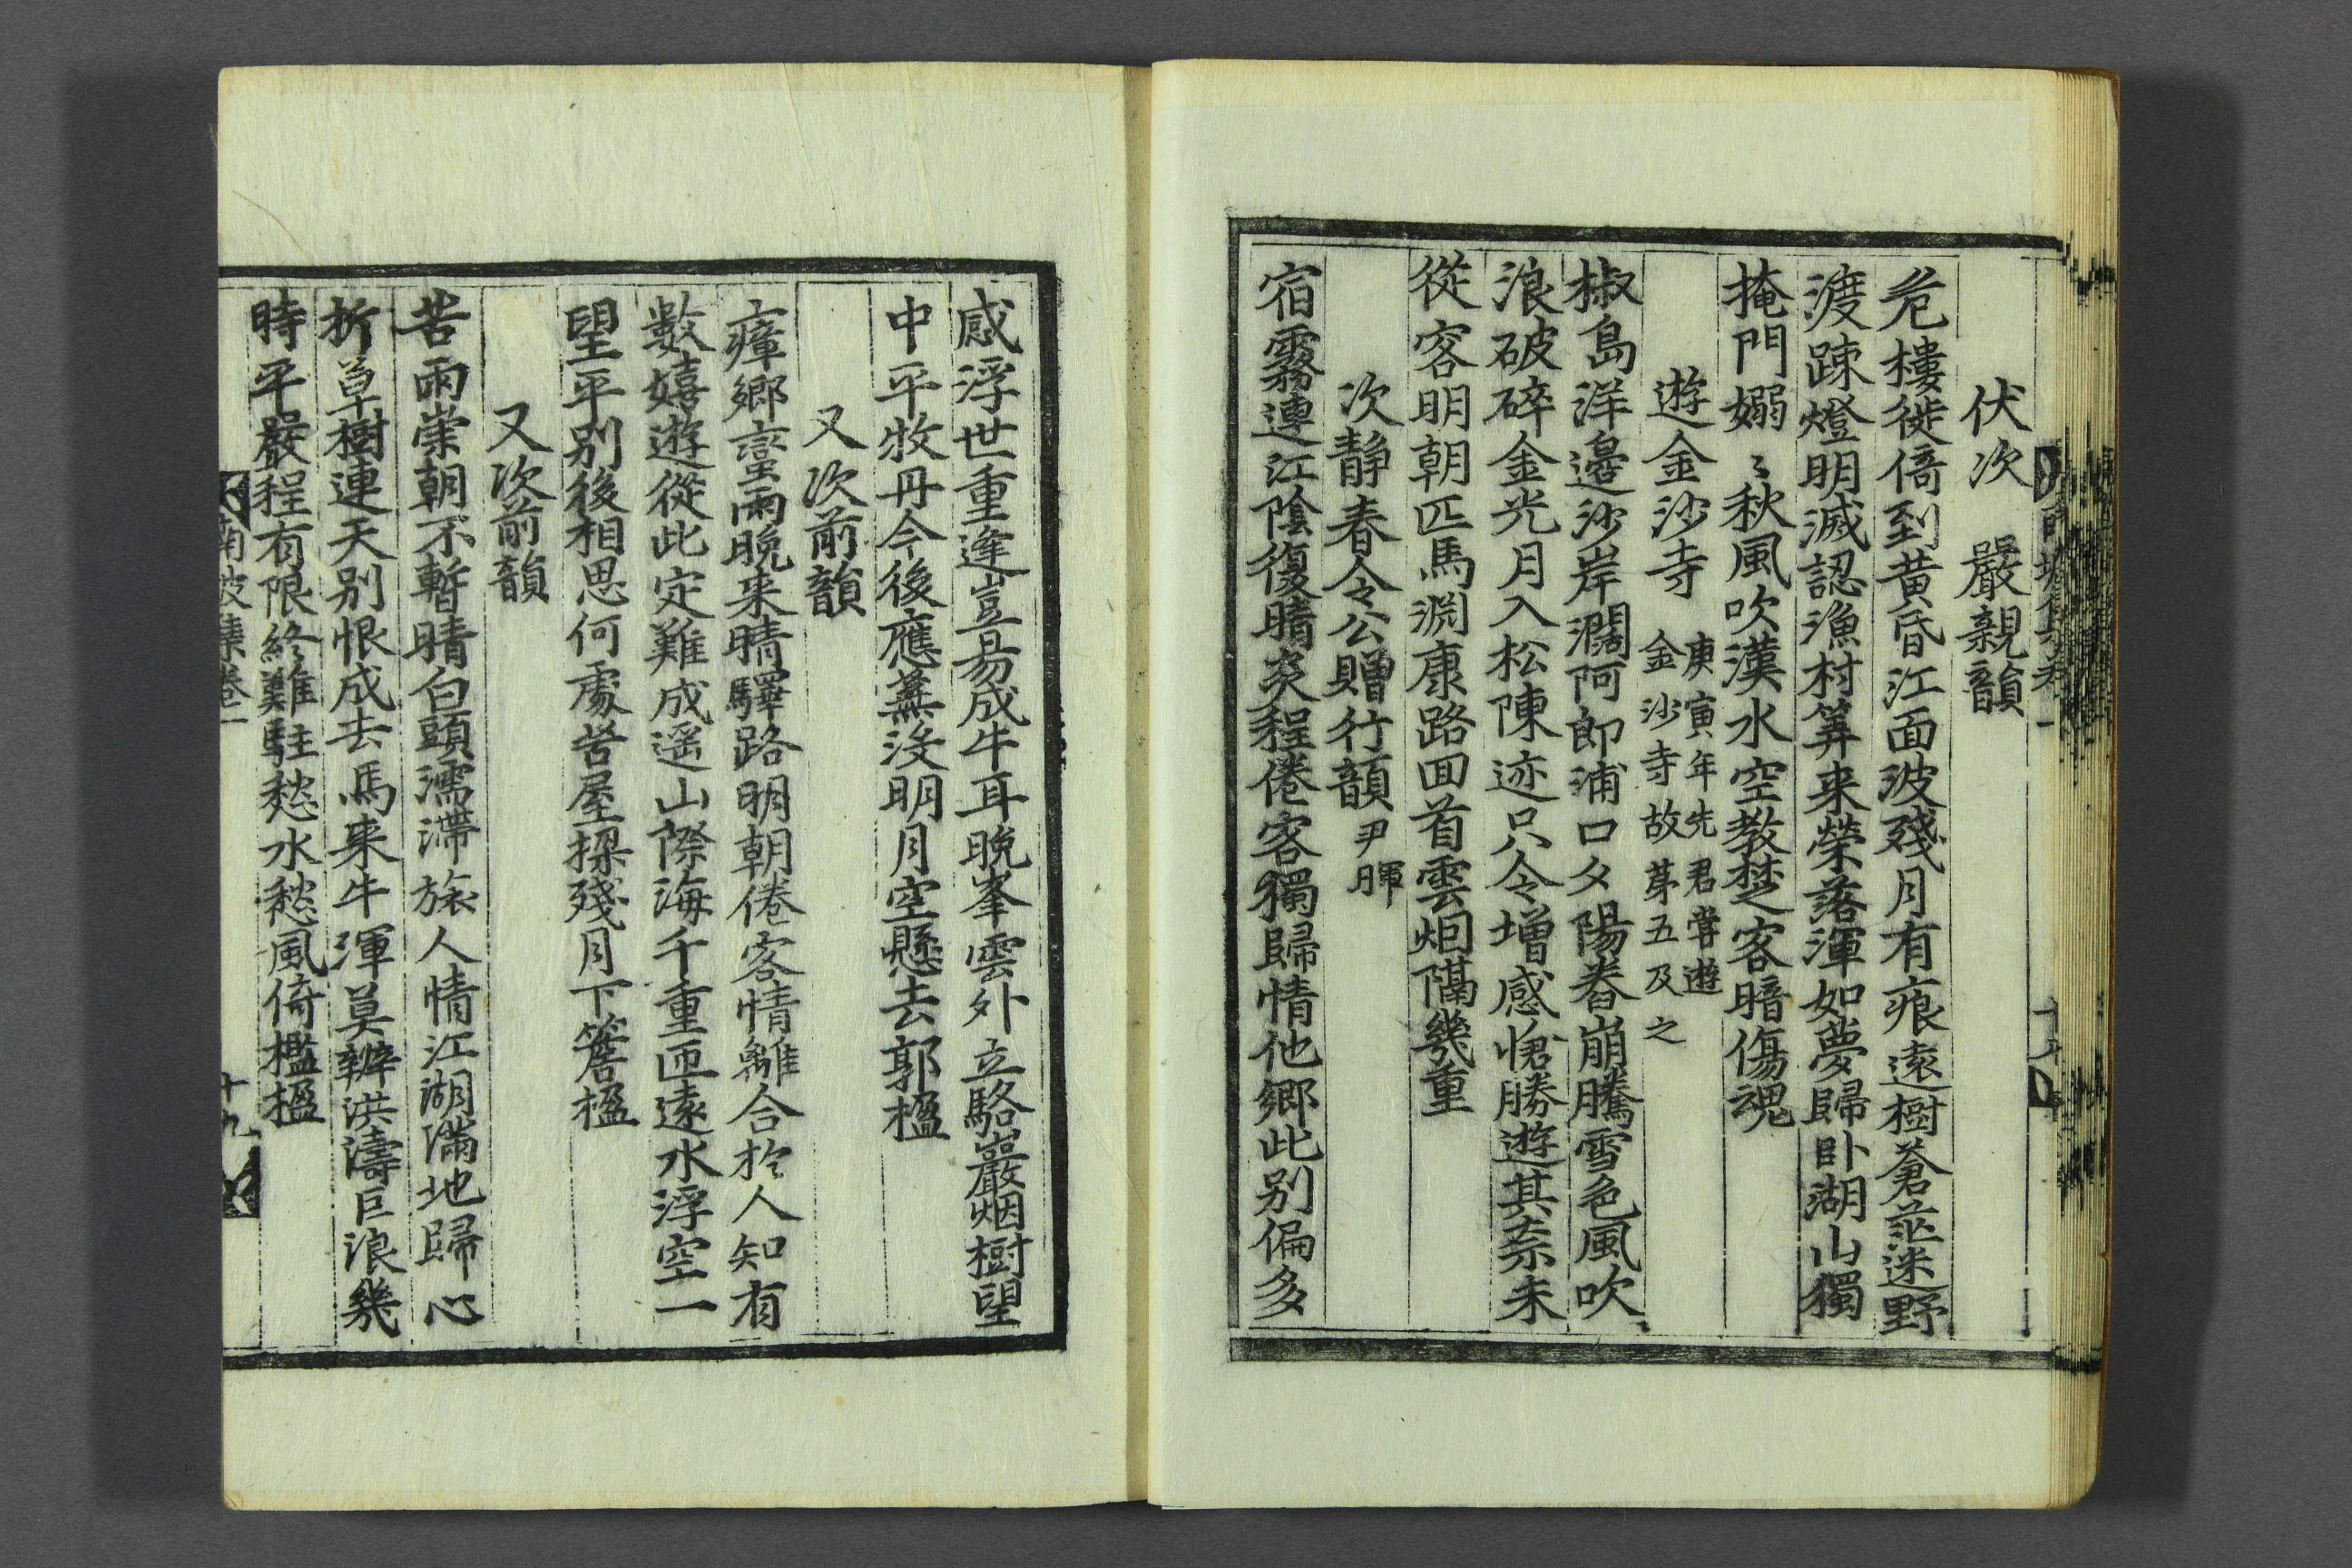 伏次 嚴親韻
危樓徙倚到黃昏江面波殘月有痕遠樹蒼茫迷野
渡踈燈明滅認漁村筭來榮落渾如夢歸卧湖山獨
掩門嫋〻秋風吹漢水空教楚客暗傷魂
遊金沙寺 庚寅年先君嘗遊
金沙寺故苐五及之
椒島洋邊沙岸濶阿郎浦口夕陽舂崩騰雪色風吹
浪破碎金光月入松陳迹只令增感愴勝遊其柰未
從容明朝匹馬淵康路回首雲烟隔幾重
次靜春令公贈行韻 尹暉
宿霧連江陰復晴炎程倦客獨歸情他鄉此別偏多
感浮世重逢豈易成牛耳晩峯雲外立駱巖烟樹望
中平牧丹今後應蕪沒明月空懸去郭楹
又次前韻
瘴鄉蠻雨晩来晴驛路明朝倦客情離合於人知有
數嬉遊從此定難成遥山際海千重匝遠水浮空一
望平別後相思何處苦屋梁殘月下簷楹
又次前韻
苦雨崇朝不暫晴白頭濡滯旅人情江湖滿地歸心
折草樹連天別恨成去馬来牛渾莫辨洪濤巨浪幾
時平嚴程有限終難駐愁水愁風倚檻楹
南坡集卷一
十九